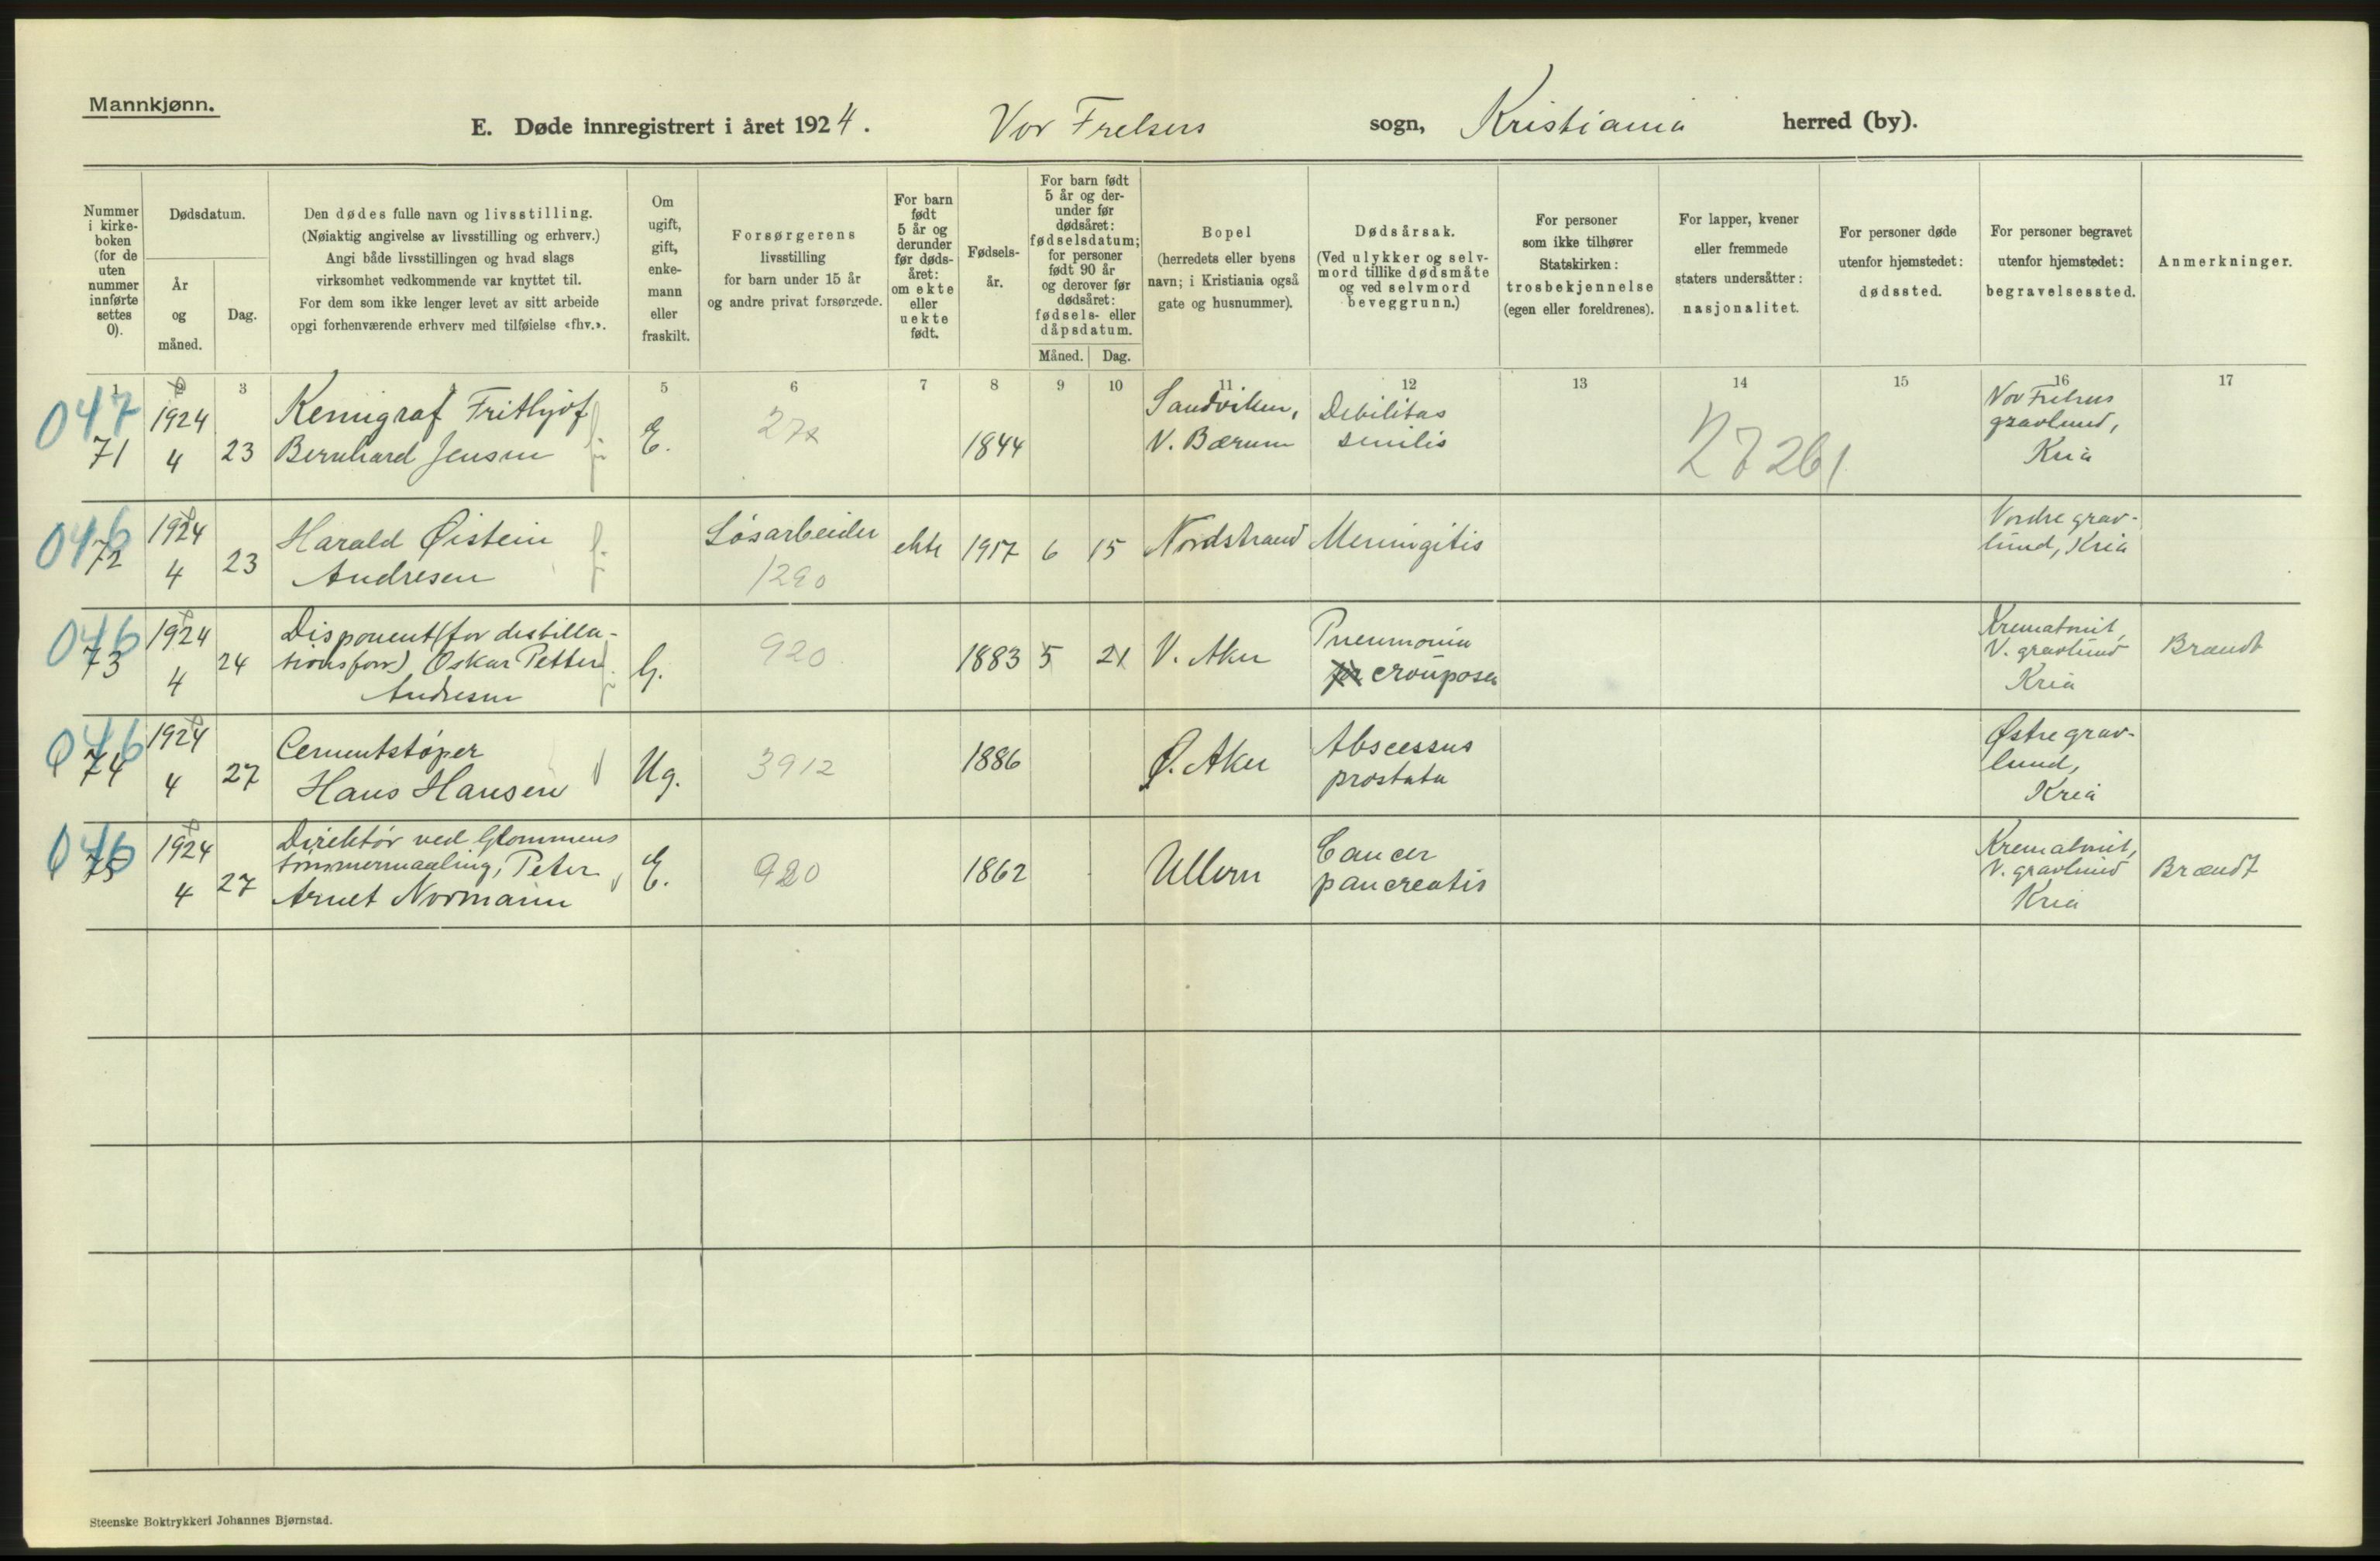 Mannkjønn.
E. Døde innregistrert i året 1924. Vor Frelsers sogn, Kristiania herred (by).
Nummer i kirke-boken (for de uten nummer innførte settes 0).
Dødsdatum.
År og måned.
Dag.
Den dødes fulle navn og livsstilling.
(Nøiaktig angivelse av livsstilling og erhverv.)
Angi både livsstillingen og hvad slags
virksomhet vedkommende var knyttet til.
For dem som ikke lenger levet av sitt arbeide
opgi forhenværende erhverv med tilføielse «fhv.».
Om ugift, gift, enke-mann eller fraskilt.
Forsørgerens
livsstilling
for barn under 15 år
og andre privat forsørgede.
For barn født 5 år og derunder før døds-året: om ekte eller uekte født.
Fødsels-år.
For barn født 5 år og der-under før dødsåret: fødselsdatum; for personer født 90 år og derover før dødsåret: fødsels- eller dåpsdatum.
Måned. Dag.
Bopel
(herredets eller byens
navn; i Kristiania også
gate og husnummer).
Dødsårsak.
(Ved ulykker og selv-
mord tillike dødsmåte
og ved selvmord
beveggrunn.)
For personer
som ikke tilhører
Statskirken:
trosbekjennelse
(egen eller foreldrenes).
For lapper, kvener
eller fremmede
staters undersåtter:
nasjonalitet.
For personer døde
utenfor hjemstedet:
dødssted.
For personer begravet
utenfor hjemstedet:
begravelsessted.
Anmerkninger.
1 2 3 5 6 7 8 9 10 11 12 13 14 15 16 17
047
71 1924 4 23 Kemigraf Frithjof
Bernhard Jensen E. 1844 Sandviken,
V. Bærum Debilitas
senilis 27261 Vor Frelsers
gravlund,
Kria
046
72 1924 4 23 Harald Øistein
Andresen Løsarbeider
1290 ekte 1917 6 15 Nordstrand Meningitis Nordre grav-
lund, Kria
046
73 1924 4 24 Disponent (for destilla-
tionsforr), Oskar Petter
Andresen G. 920 1883 5 21 V. Aker Pneumonia
crouposa Krematoriet,
V. gravlund
Kria Brændt
046
74 1924 4 27 Cementstøper
Hans Hansen Ug. 3912 1886 Ø. Aker Abscessus
prostata Østre grav-
lund,
Kria
046
75 1924 4 27 Direktør ved Glommens
tømmermaaling, Peter
Arnet Normann E. 920 1862 Ullern Cancer
pancreatis Krematoriet,
V. gravlund
Kria Brændt
Steenske Boktrykkeri Johannes Bjørnstad.